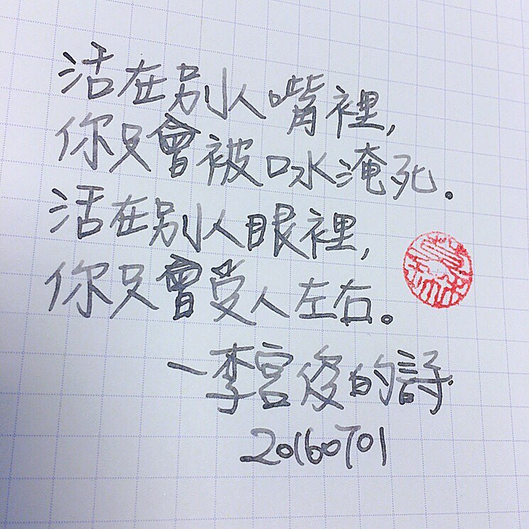 活在別人嘴裡,
你只會被口水淹死.
活在別人眼裡,
你只會受人左右。
-李宮俊的詩
20160701